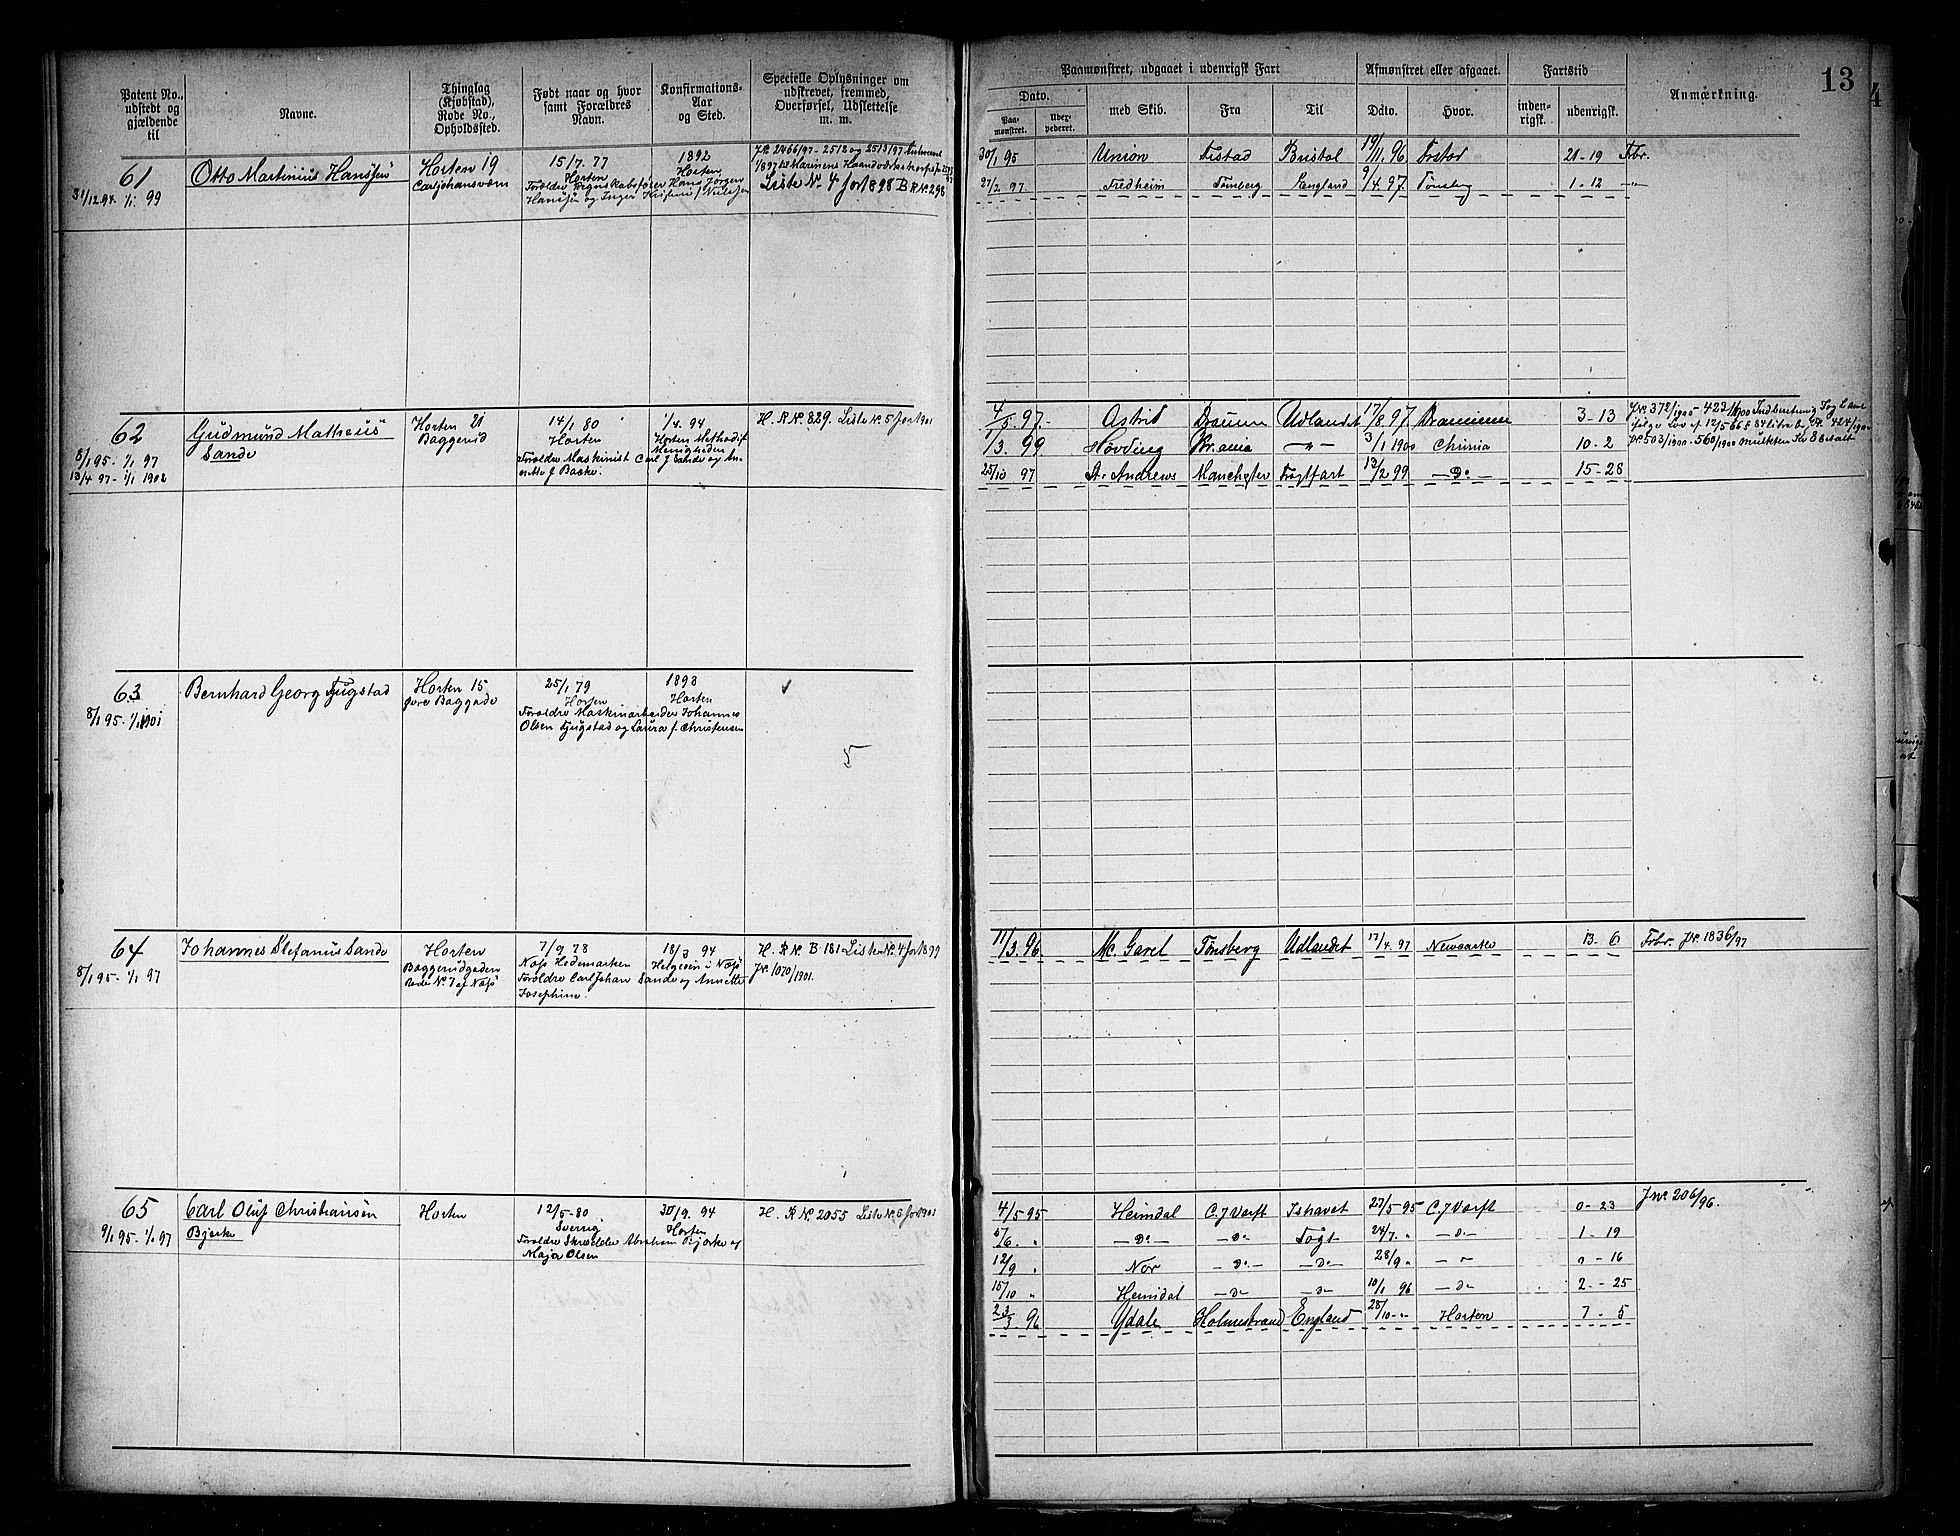 13
4
Patent No., udstedt og gjældende til
Navne.
Thinglag (Kjøbstad), Rode No., Opholdssted.
Født naar og hvor samt Forældres Navn.
Konfirmations-Aar og Sted.
Specielle Oplysninger om udskrevet, fremmed, Overførsel, Udslettelse m. m.
Paamønstret, udgaaet i udenrigsk Fart
Afmønstret eller afgaaet.
Fartstid
Anmærkning.
Dato.
Paa-mønstret.
med Skib.
Fra
Til
Dato.
Hvor.
inden-rigsk.
udenrigsk.
61
31/12 94. 1/1 99
Otto Martinius Hanssen
Horten 19
Carljohansværn
15/7. 77
Horten
Forældre Regnskabsfører Hans Jørgen
Hanssen og Inger Kristine f Nielsen
1892
Horten
Liste No 4 for 1898 B R.No 298
30/1 95 Union Bristol 19/11. 96 21-19 Frbr.
27/2 97. Fredheim Tønsberg England 9/4. 97. Tønsberg 1-12 -"-
62
8/1 95 - 1/1 97
13/4 97 - 1/1 1902
Gudmund Matheus
Sande
Horten 21
Baggerud
14/1 80
Horten
Forældre Maskinist Carl J Sande og
f. Baske.
1/4. 94
Horten Methodist
Menigheden
H. R No. 829. Liste No. 5 for 1901
4/5. 97. Astrid Drammen Udlandet 17/8 97. Drammen 3-13
1/3. 99 Høvding -"- 3/1 1900 10-2
25/10 97 St. Andrews Manchester Fragtfart 13/2 99 -Do- 15-28
63
8/1 95. 1/1 1901
Bernhard Georg Fjugstad
Horten 15
øvre Baggerud
25/1 79
Horten
Forældre Maskinarbeider Johannes
Olsen Fjugstad og Laura f. Christensen
1893
Horten
5
64
8/1 95 - 1/1 97
Johannes Stefanus Sande
Horten
Baggerudgaden
Rode No. 7 af Næs
7/9 78
Næs Hedemarken
Forældre Carl Johan Sande og Annette
Josephine.
18/3 94
Helgeøen i Næs
H. R No. B 181 Liste No. 4 for 1899
JNo. 1070/1901.
11/3. 96 Mc. Garel Tønsberg Udlandet 17/4. 97 13-6 Frbr. JNo. 1836/97
65
9/1 95 - 1/1 97
Carl Oluf Christiansen
Bjerke
Horten
12/5-80
Sverrig
Forældre Skrædder Abraham Bjerke og
Maja Olsen
30/9. 94
Horten
H. R No. 2055 Liste No. 5 for 1901
4/5-95 Heimdal C.J Værft Ishavet 27/5-95 C.J Værft 0-23 JNo. 206/96.
5/6. " -Do- -Do- Togt 24/7. " -Do- 1-19
12/9 " Nor -Do- -Do- 28/9 " - " 0-16
15/10 " Heimdal -Do- -Do- 10/1 96 -Do- 2-25
23/3. 96 Ydale Holmestrand England 28/10 - " Horten 7-5